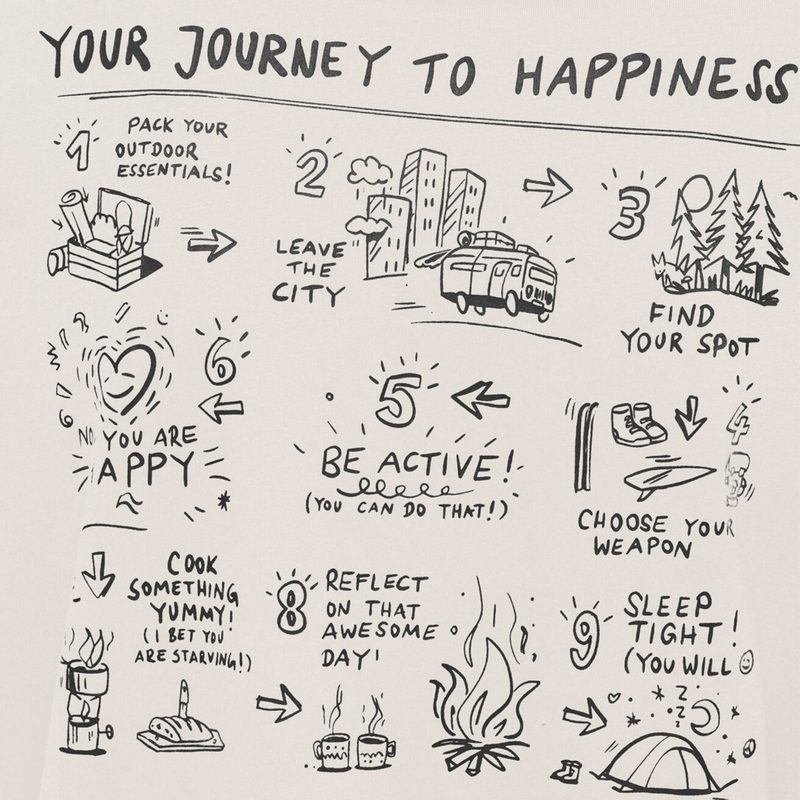 YOUR JOURNEY TO HAPPINESS
1
PACK YOUR
OUTDOOR
ESSENTIALS!
2
LEAVE
THE
CITY
3
FIND
YOUR SPOT
4
CHOOSE YOUR
WEAPON
5
BE ACTIVE!
(YOU CAN DO THAT!)
6
YOU ARE
APPY
COOK
SOMETHING
YUMMY!
(I BET YOU
ARE STARVING!)
8
REFLECT
ON THAT
AWESOME
DAY!
9
SLEEP
TIGHT!
(YOU WILL ☺
z
z
z